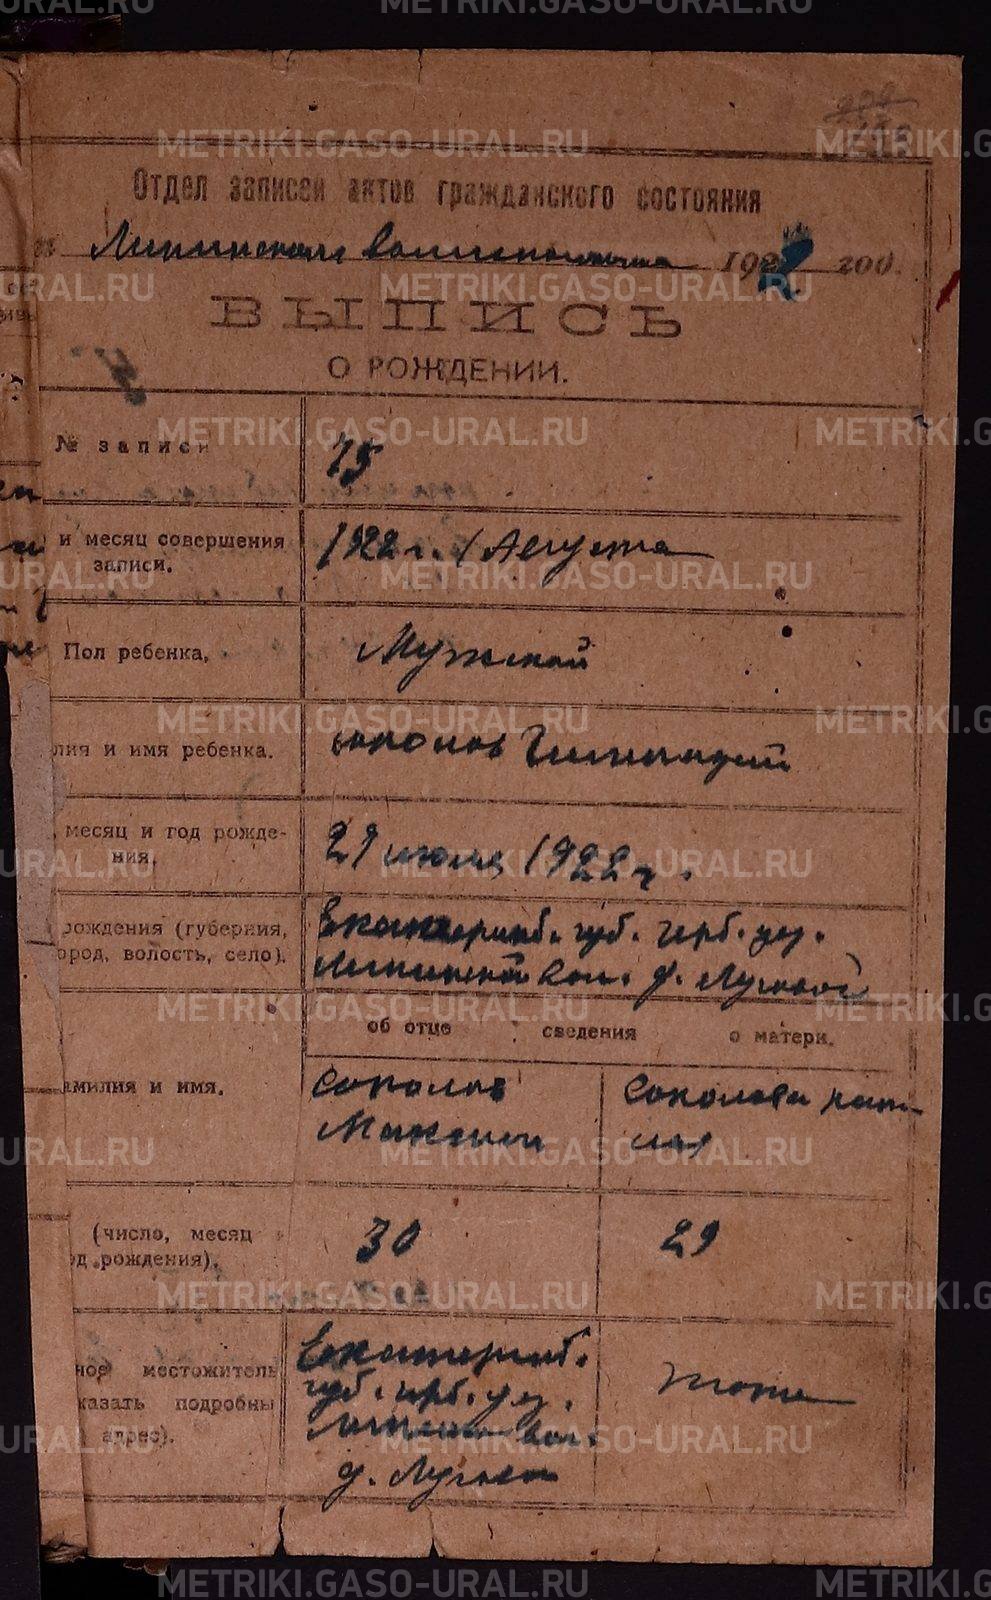 Отдел записей актов гражданского состояния
1922 200
ВЫПИСЬ
О РОЖДЕНИИ.
№ записи 75
и месяц совершения записи. 1922 г. 1 Августа
Пол ребенка, Мужской
лия и имя ребенка. Соколов Геннадий
месяц и год рожде-
ния. 29 июля 1922 г.
рождения (губерния, Екатеринб. губ. Ирб. уез.
ород, волость, село). вол. д. Луговой
об отце сведения о матери.
амилия и имя. Соколов Соколова
Максим
(число, месяц 30 29
од рождения).
ное местожитель Екатеринб.
казать подробны губ. Ирб. уез. тоже
адрес). вол.
д. Луговой
METRIKI.GASO-URAL.RU